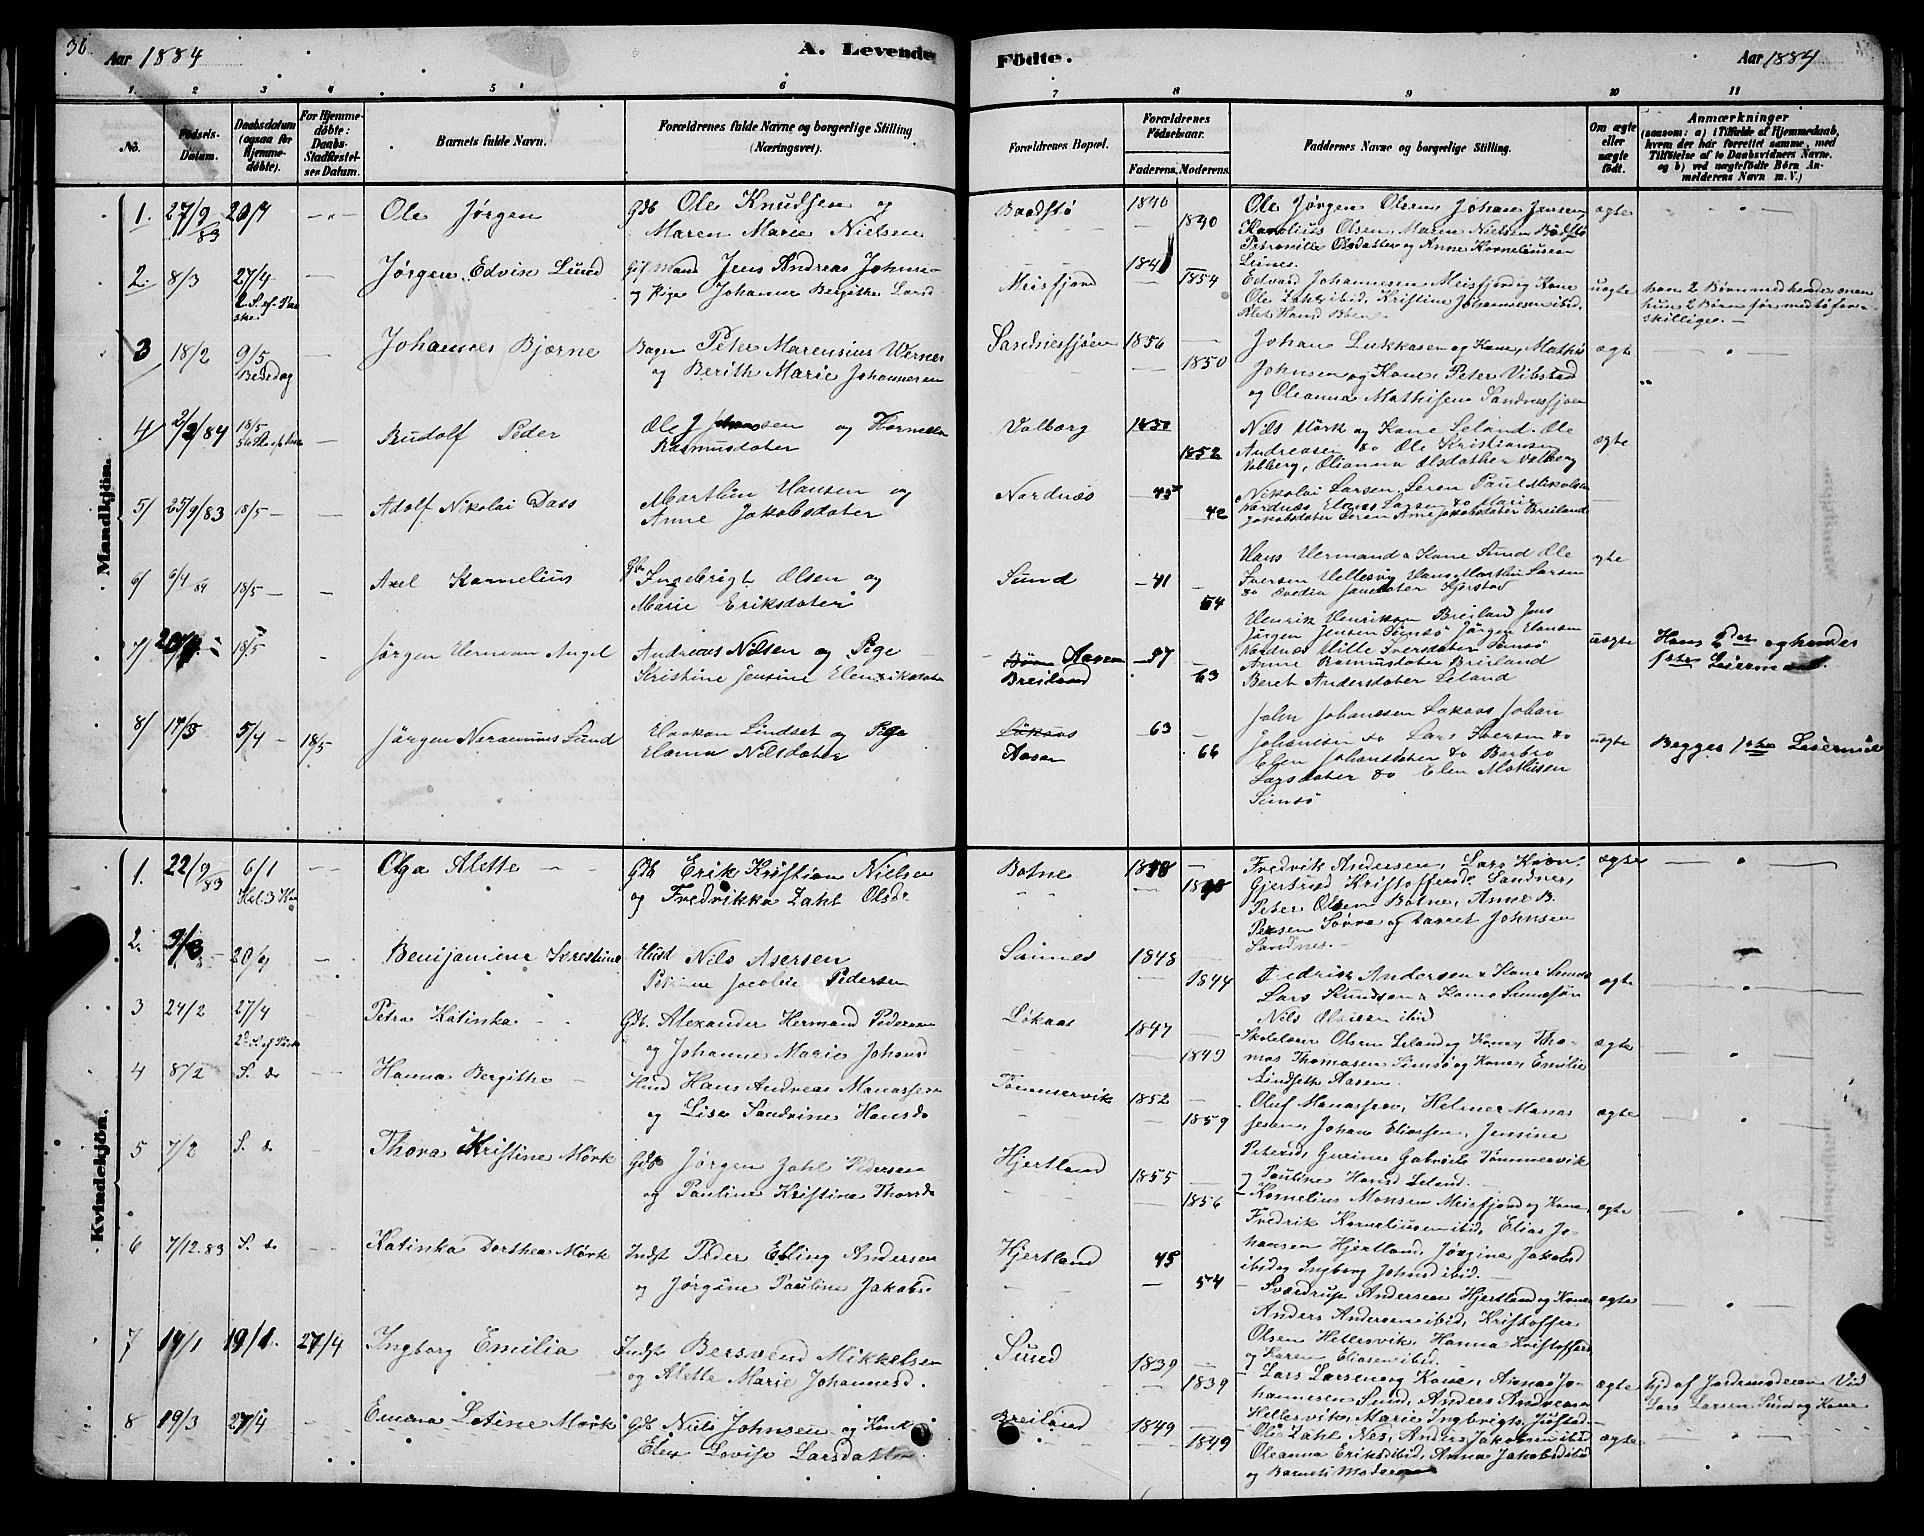 36
Aar 1884
A. Levende
Födte.
Aar 1884
1
2
3
4
5
6
7
8
9
10
11
No.
Födsels-Datum.
Daabsdatum (ogsaa for Hjemmedöbte).
For Hjemmedöbte: Daabs-Stadfæstelses Datum.
Barnets fulde Navn.
Forældrenes fulde Navne og borgerlige Stilling (Næringsvei).
Forældrenes Bopæl.
Forældrenes Födselsaar.
Faderens.
Moderens.
Faddernes Navne og borgerlige Stilling.
Om ægte eller uægte födt.
Anmærkninger
(saasom: a) i Tilfælde af Hjemmedaab, hvem der har forrettet samme, med Tilföielse af to Daabsvidners Navne, og b) ved uægtefödte Börn Anmelderens Navn m. V.)
Mandkjön.
1. 27/9 83 20/4 Ole Jörgen Gdb Ole Knudsen og
Maren Marie Nielsen
Baadstö 1840 1840
Ole Jörgen Olsen, Johan Jensen,
Kornelius Olsen, Maren Nielsen Bödstö
Petronille Olsdatter og Anne Korneliussen
ægte
2. 8/3 27/4 Jörgen Edvin Lund
Jens Andreas Johns
og Pige Johanna Bergitha Larsd
Meisfjord 184 1854
Edvard Johannesen Meisfjord og Kone
Ole Zahl ibid, Kristine Johannesen ibid.
uægte
han 2 Börn med hende
hun 2 Börn för med to for-
skillige.
3 18/2 9/5 Bededag Johannes Bjarne
Peter Marensius Werner
og Berith Marie Johannesen
Sandnessjöen 1856 1850
Johan Lukkasen og Kone, Mathis
Johnsen og Kone, Peter Vibstad
og Oleanna Mathisen Sandnessjöen
ægte
4/ 2/2/84 18/5 Rudolf Peder
Ole Johansen og Kornelia
Rasmusdater
Valberg 1830 1852
Nils Mörk og Kone Leland. Ole
Andreasen do Ole Kristiansen
Valberg, Olianna Olsdather Valberg
ægte
5/ 25/9/83 18/5 Adolf Nikolai Dass
Marthin Hansen og
Anne Jakobsdater
Nordnæs 43 42
Nikolai Larsen Seren Paul Nikolsen
Nordnæs Larsen do Marie
Jakobsdater Anne Jakobsdater Breiland
6/ 6/4 84 18/5 Axel Kornelius
Gb Ingebrigt Olsen og
Marie Eriksdater
Sund 41 54
Hans Hermand & Kone Sund Ole
Iversen Hellesvig Hans Marthin Larsen
ægte
7/ 18/5 Jörgen Herman Angel
Andreas Nilsen og Pige
Kristine Jensine Elenriksdater
Aasen
Breiland 63
Henrik Henriksen Breiland Jens
Jörgen Jensen Simsö Jörgen Hansen
Nordnæs Mille Iversdater Simsö
Anne Rasmusdater Breiland
Beret Andersdater Leland
uægte
Hans og hendes
1ste Leiermaal.
8/ 17/3 5/4 18/5 Jörgen Sund
Haakon Lindset og Pige
Hanna Nilsdater
Lökaas
Aasen 63 66
John Johansen Lökaas Johan
Johansen do Lars Iversen do
Elen Johansdater do Berbro
Larsdater do Elen Mathisen
Simsö
uægte
Begges 1ste Leiermaal
Kvindekjön.
1. 22/9 83 6/1 Olga Alette
Gdb Erik Kristian Nielsen
og Fredrikka Zahl Olsd.
Botne
Fredrik Andersen, Lars
Gjertrud Kristoffersd. Sandnes,
Peter Olsen Botne, Anne B.
Persen Sörra og Baaret Johnsen
Sandnes.
ægte
2. 9/3 20/4 Benjamine Krestine
Husd Nils Asersen
Jacobine Pedersen
Simnes 1848 1844
Fedrik Andersen & Kone
Lars Knudsen & Kone
Nils Olaisen ibid
ægte
3 24/2 27/4 Petra Katinka
Gdb. Alexander Hermand Pedersen
og Johanne Marie Johnsd
Lökaas 1847 1849
Skolelærer Olsen Leland og Kone, Tho-
mas Thomasen Simsö og Kone, Emilie
Lindseth Aasen.
ægte
4 8/2 S. d. Hanna Bergithe
Husd Hans Andreas Manassen
og Lise Sandrine Hansd
Tömmervik 1852 1859
Oluf Manassen, Helmer Manas
sesen, Johan Eliassen, Jensine
Petersd, Gurine Gabriels Tömmervik
og Pauline Hansd Leland.
ægte
5 7/2 S. d. Thora Kristine Mörk
Gdb Jörgen Zahl Pedersen
og Pauline Kristina Thorsd
Hjertland 1855 1856
Kornelius Monsen Meisfjord og Kone,
Fredrik Korneliusen ibid, Elias Jo-
hansen Hjertland, Jörgine Jakobsd
ibid og Ingborg Johnsd ibid.
ægte
6 7/12.83 S. d. Katinka Dorthea Mörk
Indst Peder Elling Andersen
og Jörgine Pauline Jakobs.
Hjertland 45 54
Sverdrup Andersen Hjertland og Kone
Anders Andersen ibid, Kristoffer
Olsen Hellesvik, Hanna Kristoffersd
og Karen Eliasen ibid.
ægte
7 19/1 19/1. 27/4 Ingborg Emilia
Indst Bersvend Mikkelsen
og Alette Marie Johannesd.
Sund 1839 1839
Lars Larsen og Kone, Annas Jo-
hannesen Sund, Anders Andreasen
Hellesvik, Marie Ingbrigts
ægte
hjd af Jordemoderen Vid
Lars Larsen Sund og Kone
8 19/3 27/4 Emma Lotine Mörk
Gdb Niels Johnsen og Kone
Elen Lovise Larsdatter
Breiland 1849 1849
Ole Zahl Nes, Anders Jakobsen ibid
Oleanna Eriksd ibid, Anna Jakobsd ibid
og Barnets Moder
ægte